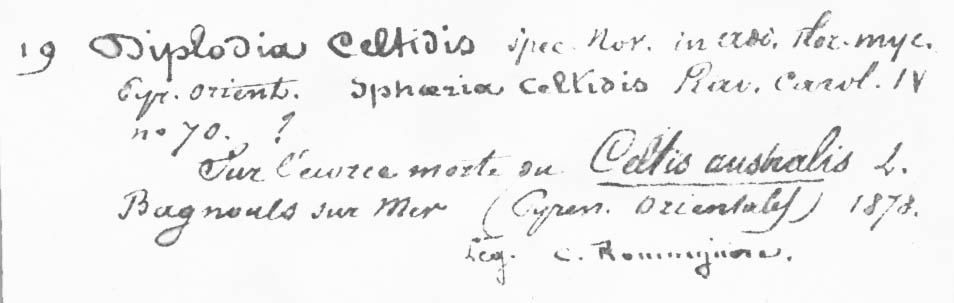 19 Diplodia Celtidis spec. Nov. in Flor. myc.
Pyr. orient. Sphæria Celtidis Rav. Carol. IV
no 70. ?
Sur l'écorce morte du Celtis australis L.
Bagnouls sur Mer (Pyren. Orientales) 1878.
Leg. C. Roumeguère.